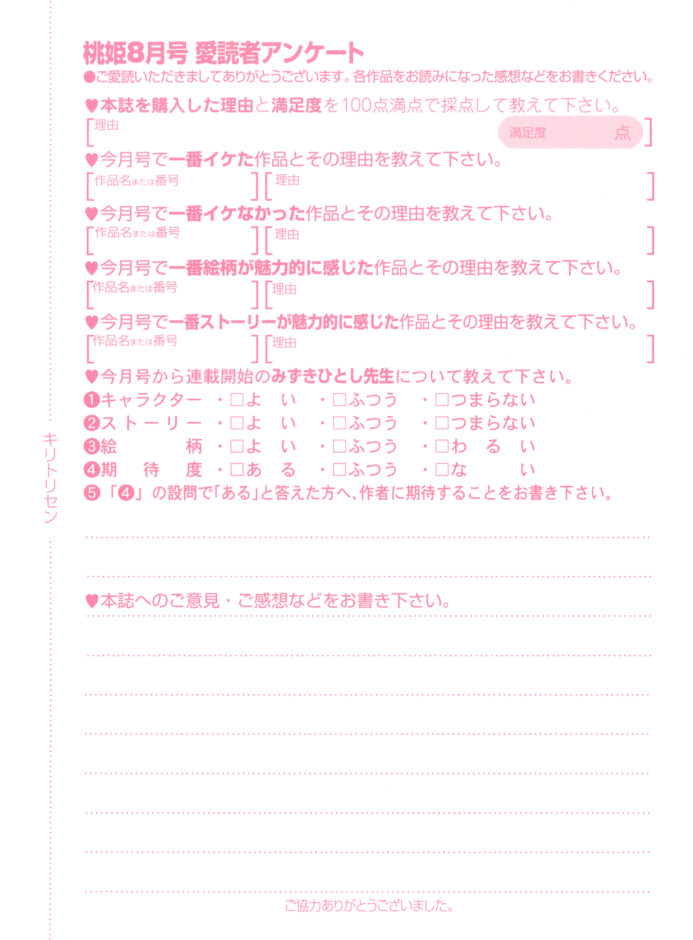 桃姫8月号 愛読者アンケート
●ご愛読いただきましてありがとうございます。各作品をお読みになった感想などをお書きください。
♥本誌を購入した理由と満足度を100点満点で採点して教えて下さい。
[理由 満足度 点]
♥今月号で一番イケた作品とその理由を教えて下さい。
[作品名または番号][理由]
♥今月号で一番イケなかった作品とその理由を教えて下さい。
[作品名または番号][理由]
♥今月号で一番絵柄が魅力的に感じた作品とその理由を教えて下さい。
[作品名または番号][理由]
♥今月号で一番ストーリーが魅力的に感じた作品とその理由を教えて下さい。
[作品名または番号][理由]
♥今月号から連載開始のみずきひとし先生について教えて下さい。
❶キャラクター ・□よ い ・□ふつう ・□つまらない
❷ストーリー ・□よ い ・□ふつう ・□つまらない
❸絵 柄 ・□よ い ・□ふつう ・□わ る い
❹期 待 度 ・□あ る ・□ふつう ・□な い
❺「❹」の設問で「ある」と答えた方へ、作者に期待することをお書き下さい。
♥本誌へのご意見・ご感想などをお書き下さい。
ご協力ありがとうございました。
キリトリセン